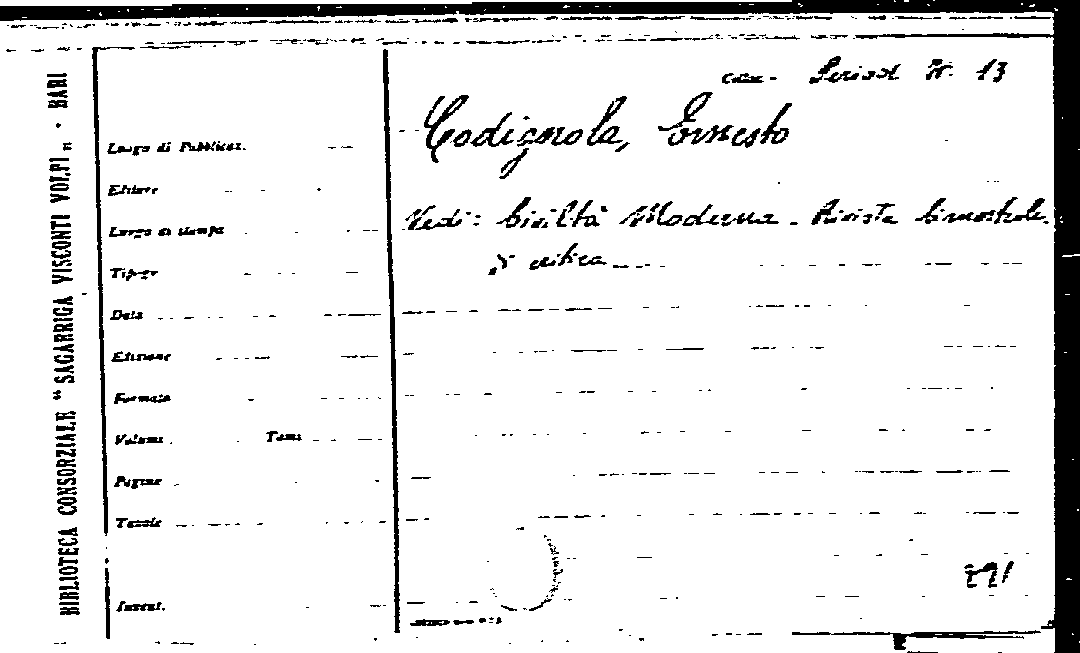 BIBLIOTECA CONSORZIALE "SAGARRIGA VISCONTI VOLPI" - BARI
Colloc. - Period N. 13
Codignola, Ernesto
Vedi: Civiltà Moderna - Rivista bimestrale
di critica
Luogo di Pubblicaz.
Editore
Luogo di stampa
Tipogr.
Data
Edizione
Formato
Volumi Tomi
Pagine
Tavole
Invent.
291